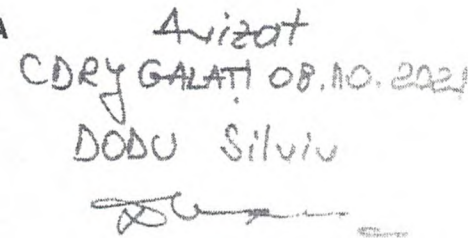 A
Avizat
CDRY GALAȚI 08.10.2021
DODU Silviu